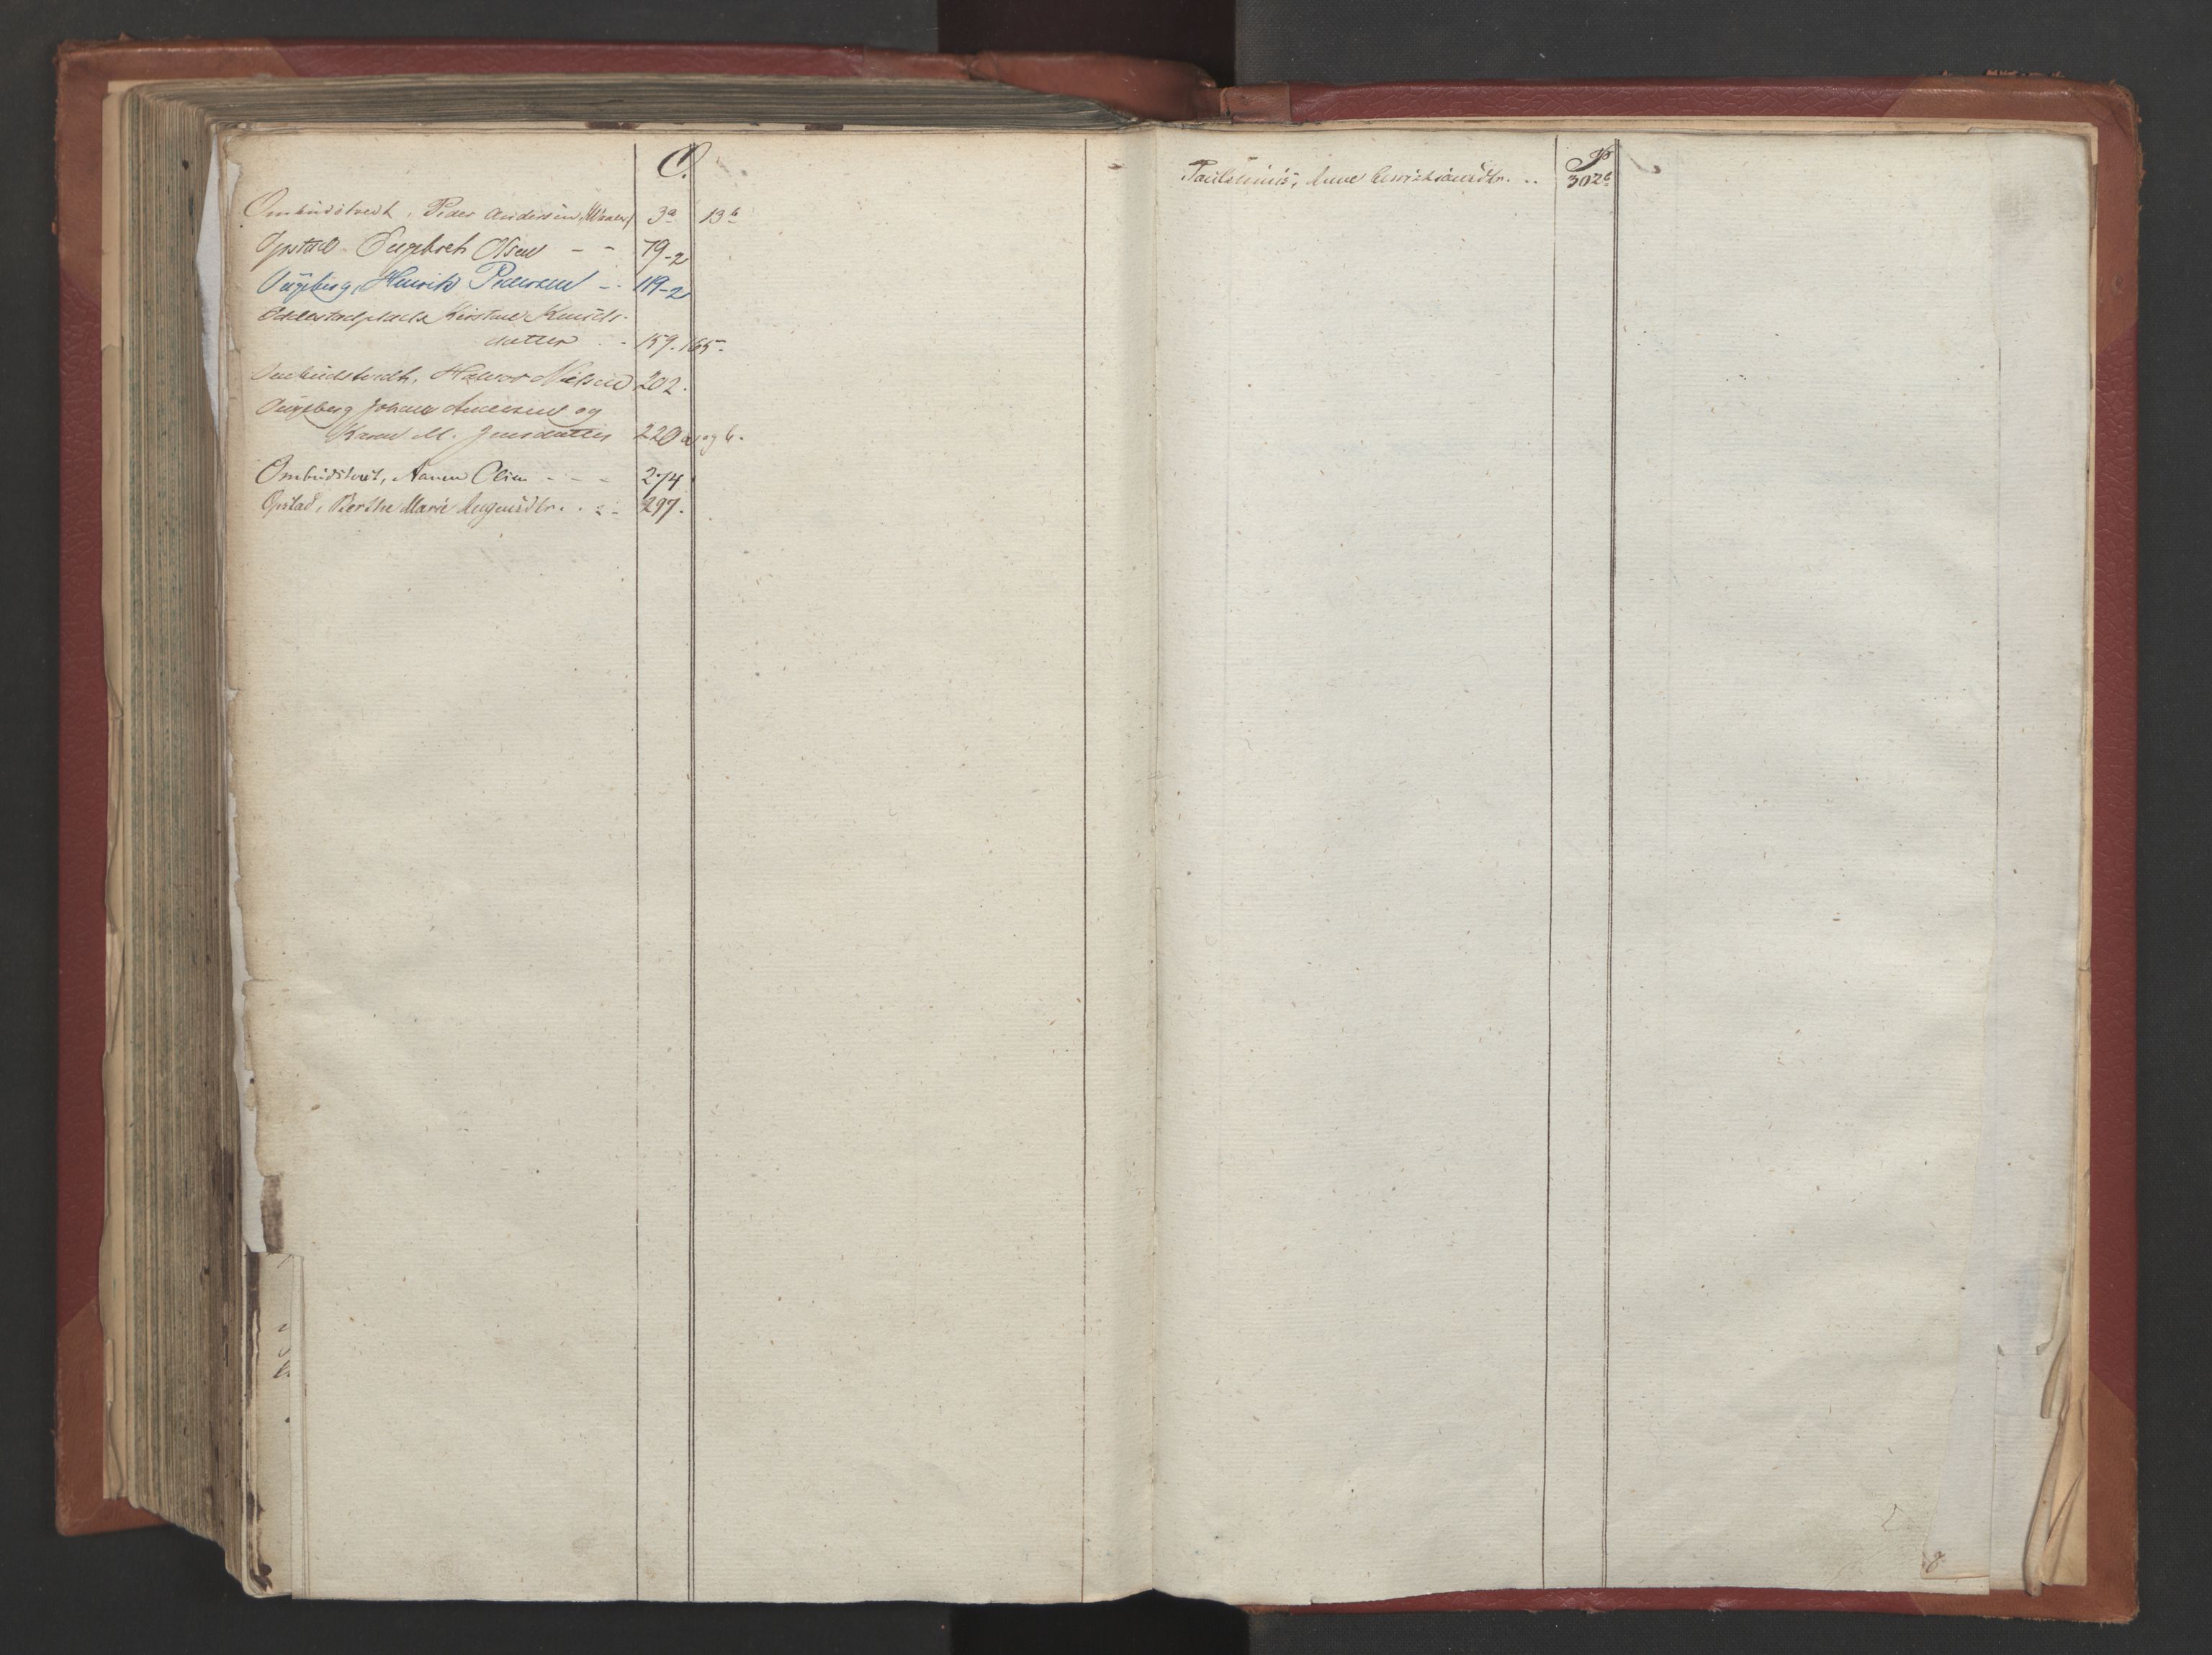 O.
Ombudstvedt, Peder Andersen 3a 13b
Opstad Engebreth Olsen - - 79-2
Ougeberg, Henrik Pedersen - - 119-2
Oddestadplads Kirstine Knuds-
datter . . 159. 165.
Ombudstvedt, Halvor Nielsen 202.
Ougeberg Johan Andersen og
Karen M. Jensdatter 220 a og b.
Ombudstvet, Maren Olsen - - - 274
Opstad, Berthe Marie Mogensdtr. . . . 297.
P
Anne Christiansdtr. . . 302b